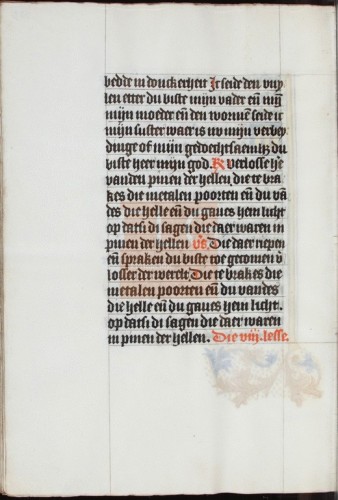 bedde in donckerheit Ic seide den vuy
len etter du biste mijn vader eñ mijn
mijn moeder eñ den wormē seide ic
mijn suster waer is nv mijn verbey
dinge of mijn gedochsaemh; du
biste heer mijn god. R verlosse he
vanden pinen der hellen die te bra
kes die metalen poorten eñ du vā
des die helle eñ du gaues hem licht
op datsi di sagen die daer waren in
pinen der hellen. vs. Die daer riepen
eñ spraken du biste toe gecomen v̄
losser der werelt Die te brakes die
metalen poorten eñ du vandes
die helle eñ du gaues hem licht.
op datsi di sagen die daer waren
in pinen der hellen. Die viij. lesse.